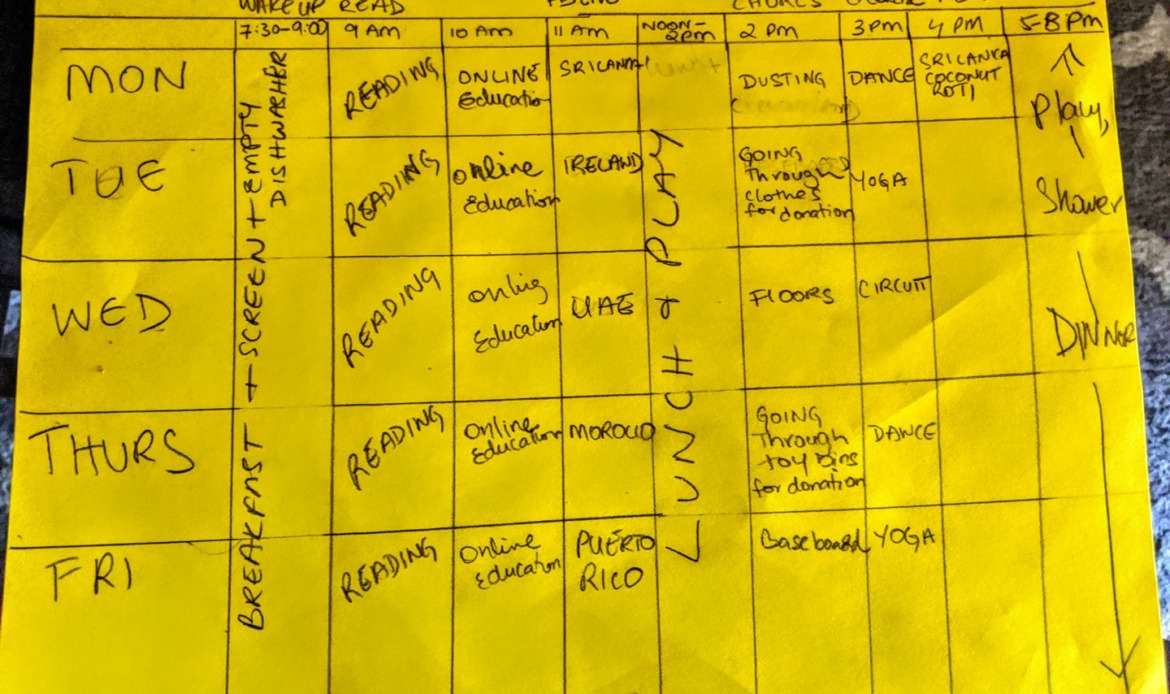 WAKEUP READ
CHORES
7:30-9:00 9 AM 10 AM 11 AM NOON-2pm 2 PM 3PM 4 PM 5-8 Pm
MON
READING
ONLINE
Education
SRILANKA
DUSTING
DANCE
SRILANKA
COCONUT
ROTI
TUE
READING
online
Education
IRELAND
GOING
Through
clothes
for donation
YOGA
WED
READING
Education
UAE
FLOORS
CIRCUIT
THURS
READING
Online
Education
MOROCCO
GOING
Through
toy bins
for donation
DANCE
FRI
READING
Online
Education
PUERTO
RICO
Baseboard
YOGA
BREAKFAST + SCREEN + EMPTY
DISHWASHER
LUNCH + PLAY
Play,
Shower
DINNER